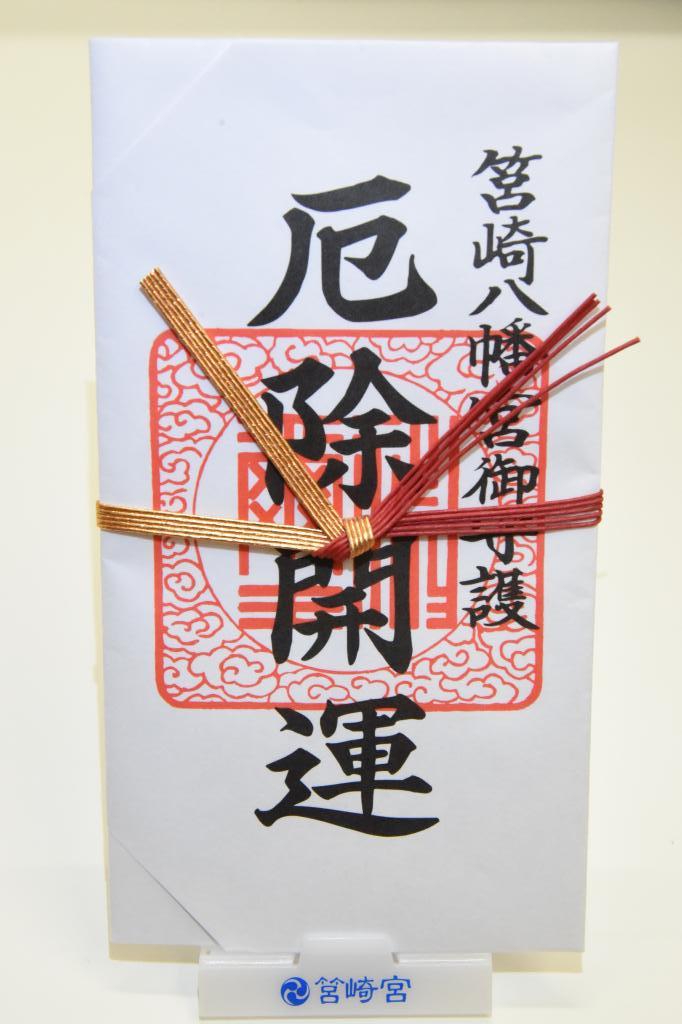 筥崎八幡宮御守護
厄除開運
筥崎宮